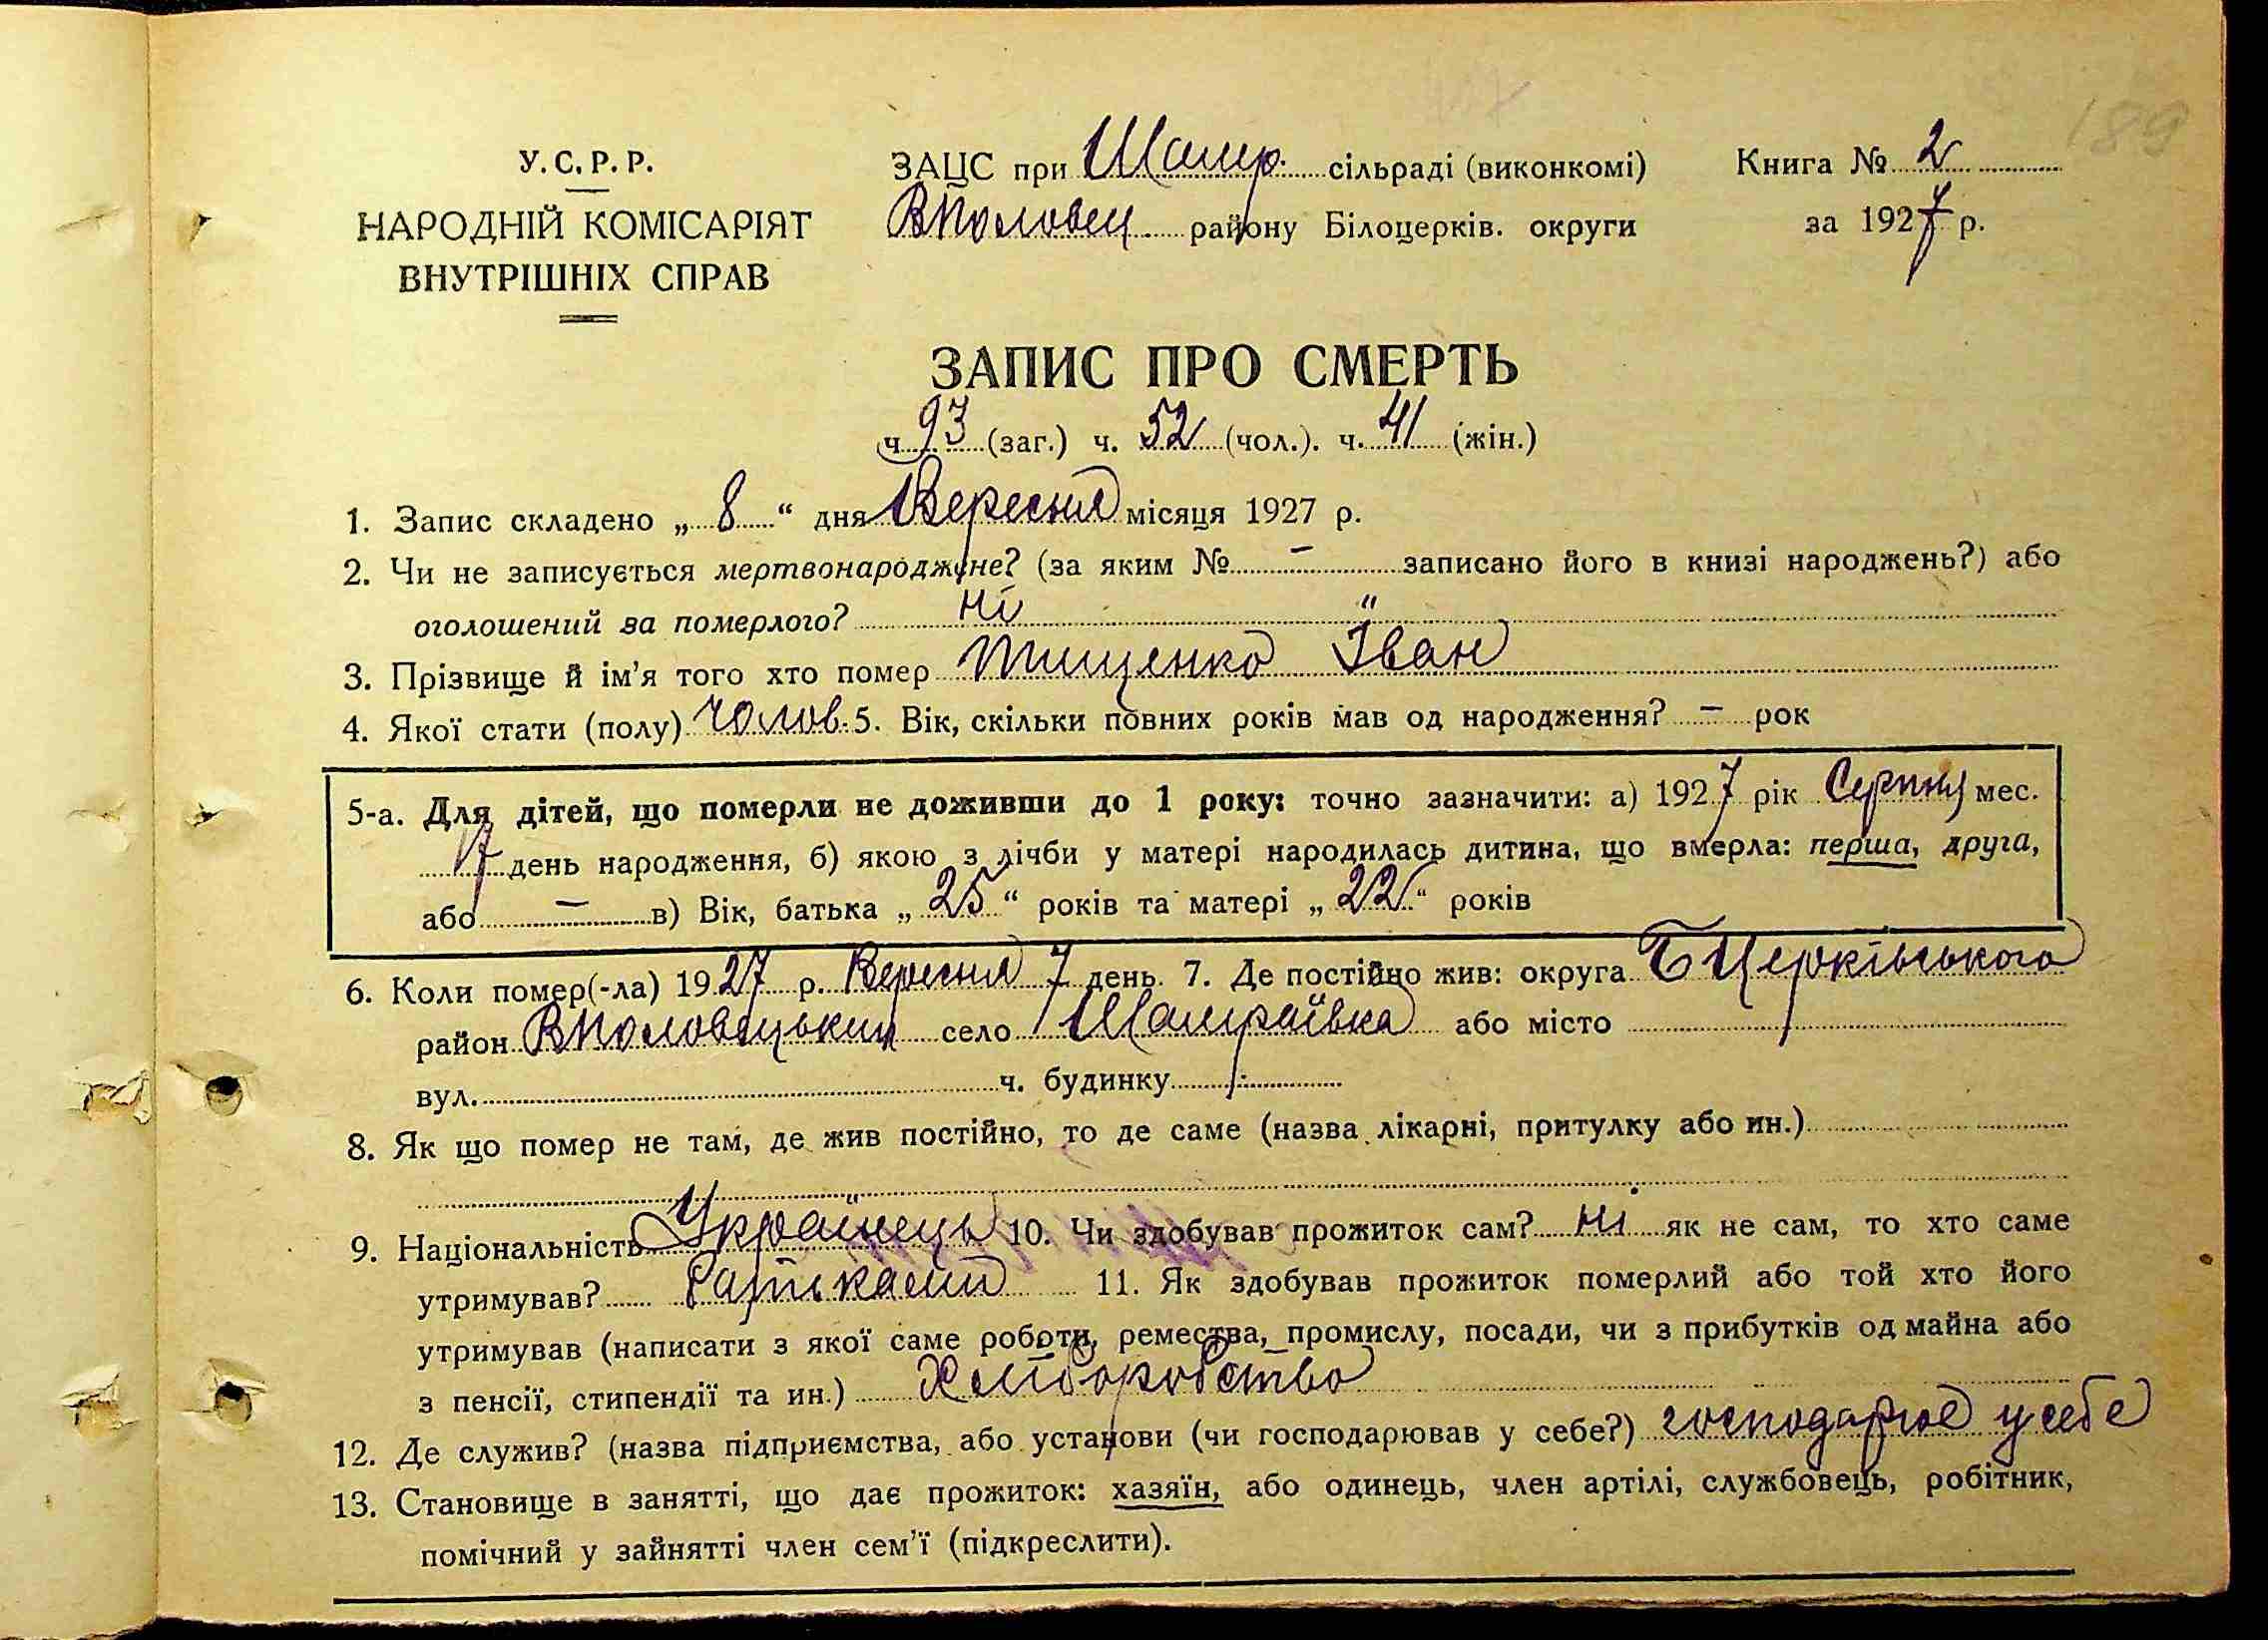 189
У.С.Р.Р.
НАРОДНІЙ КОМІСАРІЯТ
ВНУТРІШНІХ СПРАВ
ЗАЦС при Шамр. сільраді (виконкомі)
ВПоловец. району Білоцерків. округи
Книга № 2
за 1927 р.
ЗАПИС ПРО СМЕРТЬ
ч. 93 (заг.) ч. 52 (чол.). ч. 41 (жін.)
1. Запис складено „ 8 “ дня Вересня місяця 1927 р.
2. Чи не записується мертвонароджене? (за яким № – записано його в книзі народжень?) або
оголошений за померлого? ні "
3. Прізвище й ім'я того хто помер Тищенко Іван
4. Якої стати (полу) Чолов. 5. Вік, скільки повних років мав од народження? – рок
5-а. Для дітей, що померли не доживши до 1 року: точно зазначити: а) 1927 рік Серпня мес.
17 день народження, б) якою з лічби у матері народилась дитина, що вмерла: перша, друга,
або – в) Вік, батька „ 25 “ років та матері „ 22 “ років
6. Коли помер(-ла) 1927 р. Вересня 7 день. 7. Де постійно жив: округа БЦерківського
район ВПоловецький село Шамраївка або місто
вул. ч. будинку
8. Як що помер не там, де жив постійно, то де саме (назва лікарні, притулку або ин.)
9. Національність Українець 10. Чи здобував прожиток сам? ні як не сам, то хто саме
утримував? 11. Як здобував прожиток померлий або той хто його
утримував (написати з якої саме роботи, ремества, промислу, посади, чи з прибутків од майна або
з пенсії, стипендії та ин.) Хліборобство
12. Де служив? (назва підприємства, або установи (чи господарював у себе?) господарює у себе
13. Становище в занятті, що дає прожиток: хазяїн, або одинець, член артілі, службовець, робітник,
помічний у зайнятті член сем'ї (підкреслити).